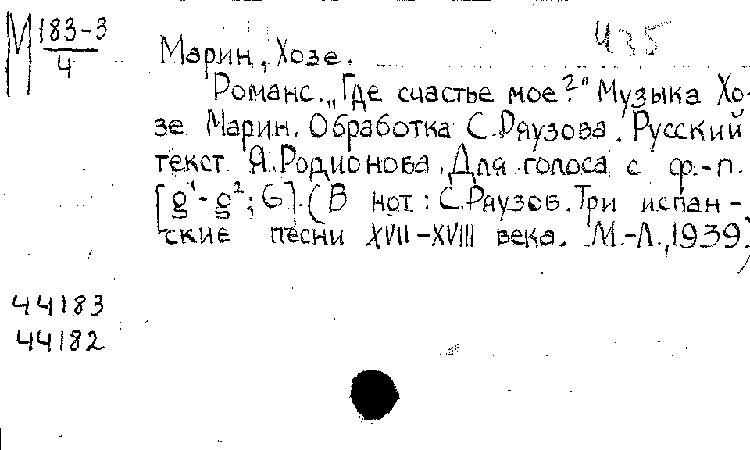 М 183-3
4
435
Марин, Хозе.
Романс. „Где счастье мое?" Музыка Хо-
зе Марин. Обработка С. Раузова. Русский
текст А. Родионова. Для голоса с ф.-п.
[g¹-g²; G]. (В нот: С. Раузов. Три испан-
ские песни XVII-XVIII века. М.-Л., 1939)
44183
44182